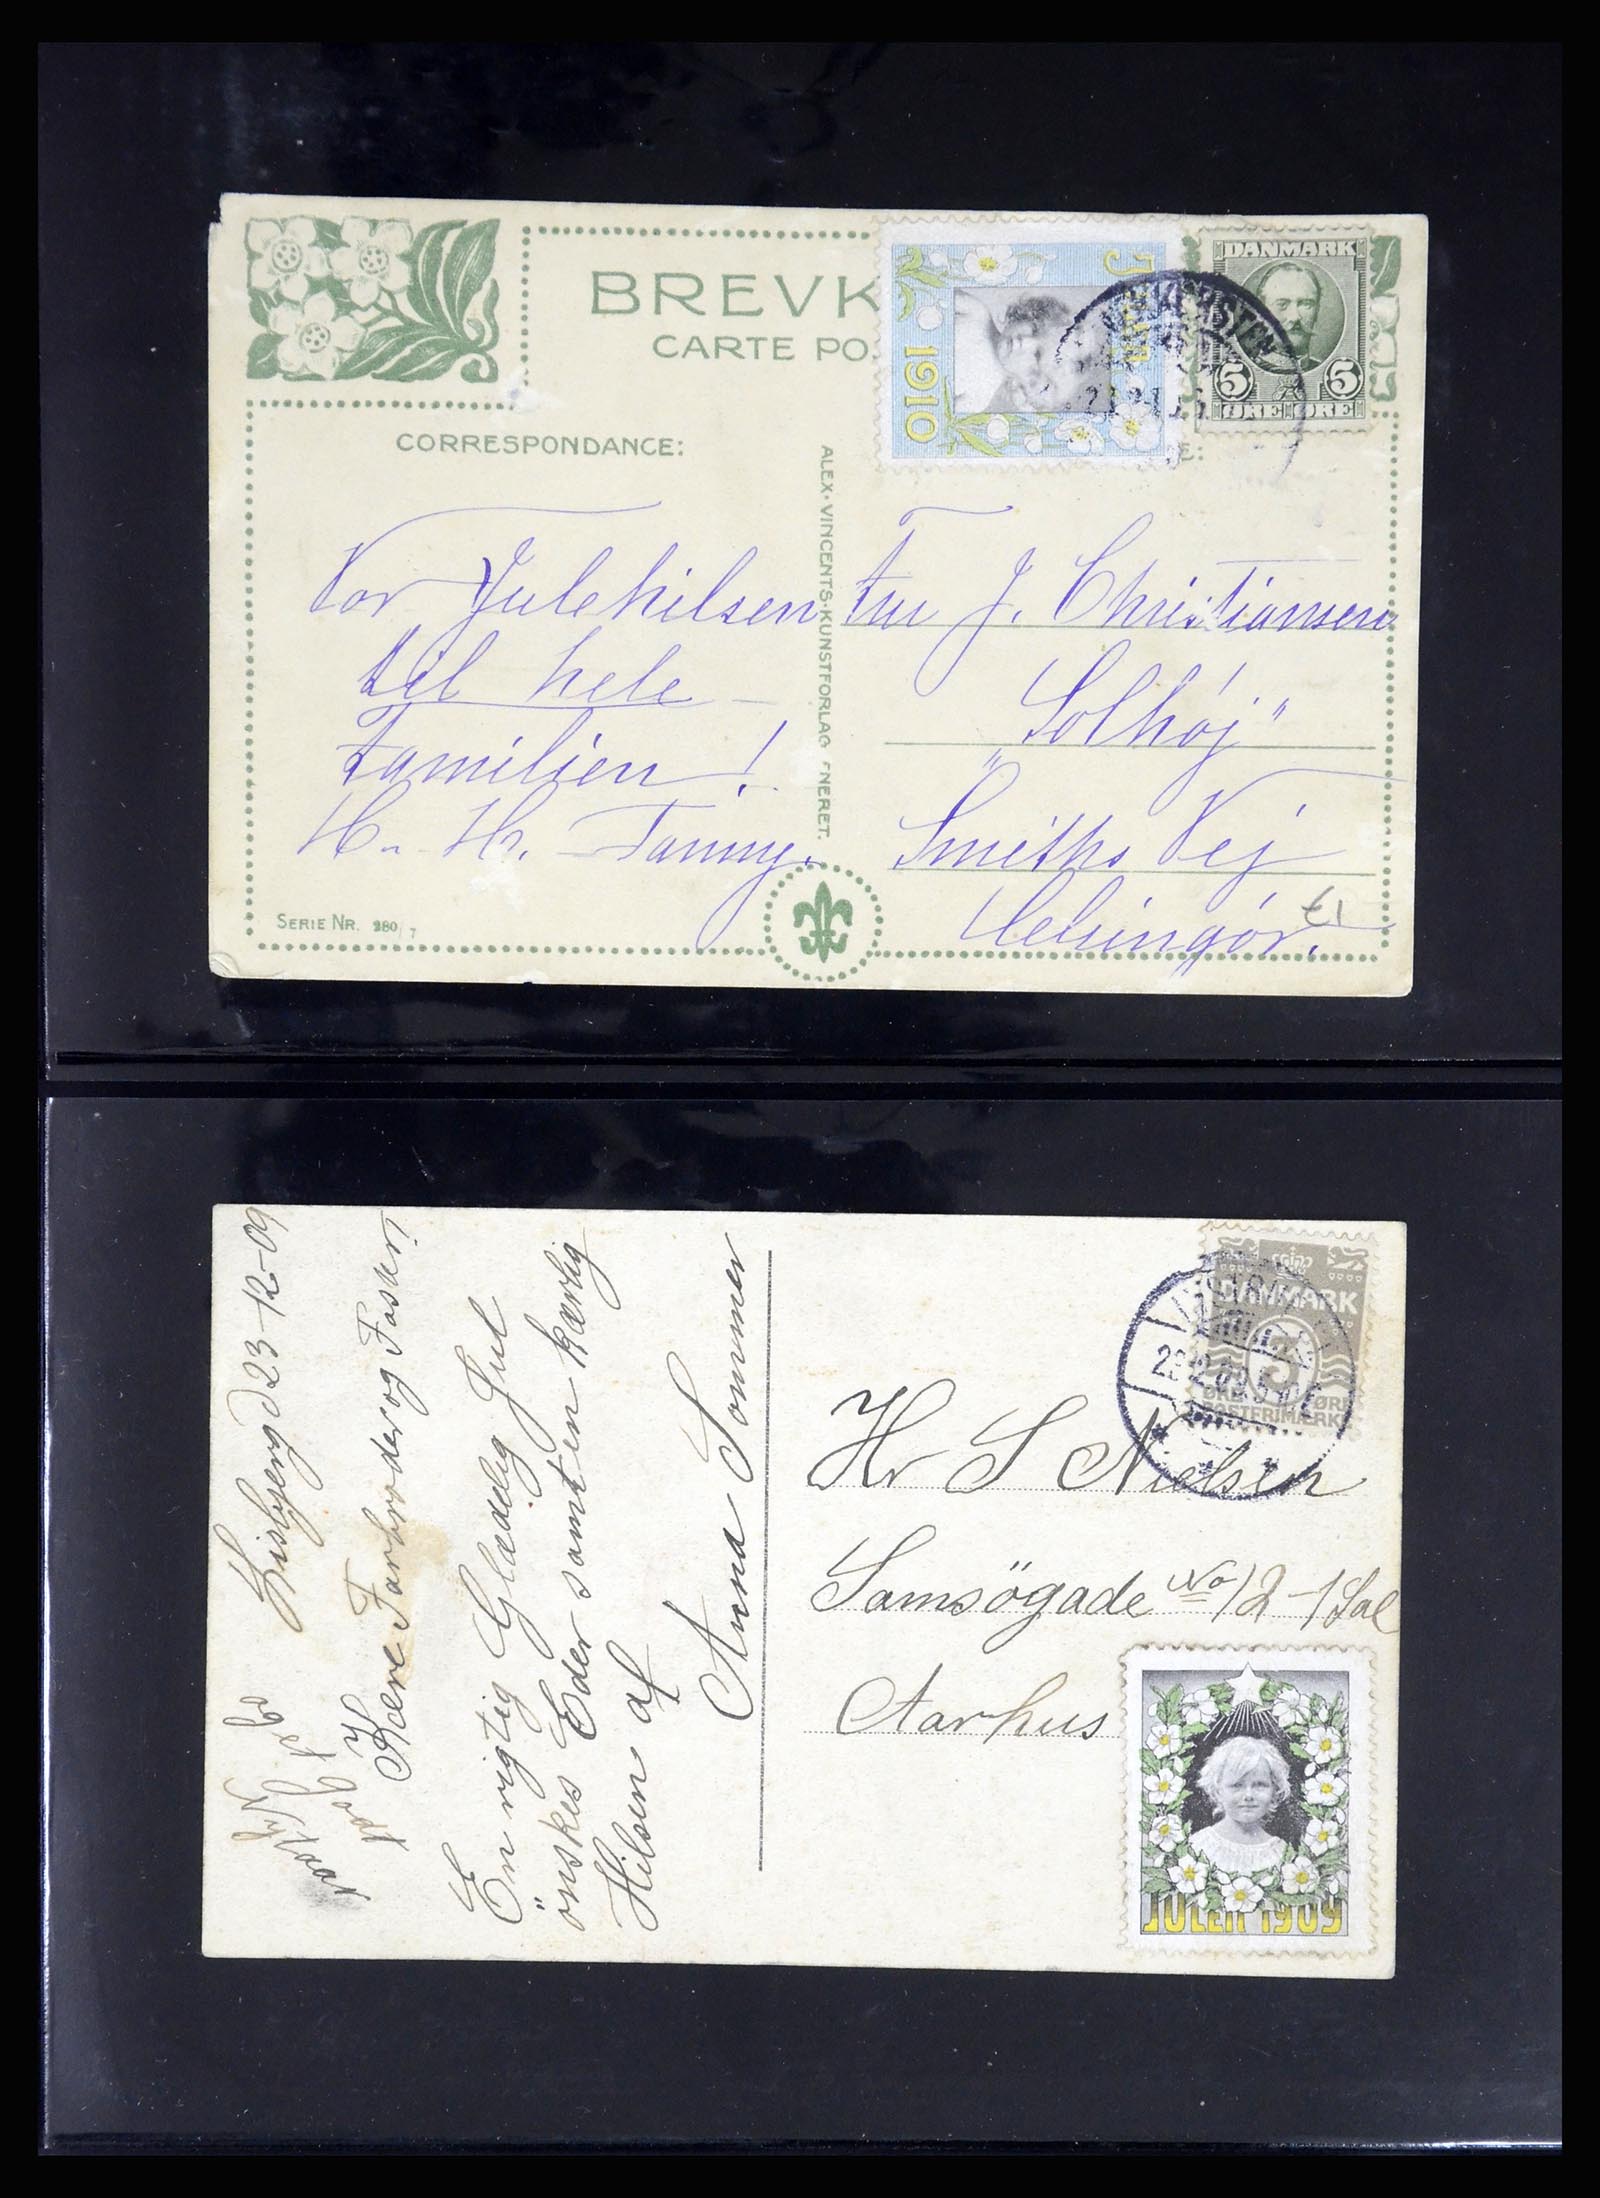 BREVK
CARTE PO
JULEN
1910
DANMARK
5 5
ØRE ØRE
CORRESPONDANCE:
E:
ALEX. VINCENTS. KUNSTFORLAG ENERET.
Vor Julehilsen
til hele
Familien!
H. H. Fanny.
Fru J. Christiansen
"Solhøj"
Smiths Vej
Helsingør.
SERIE NR. 280/7
23-12-09
Kære Farbroder og Faster!
En rigtig Glædelig Jul
önskes Eder samt en kærlig
Hilsen af
Anna Sommer
DANMARK
3
ØRE ØRE
POSTFRIMÆRKE
Hr S Nielsen
Samsögade No 12-1 Sal
Aarhus
JULEN 1909